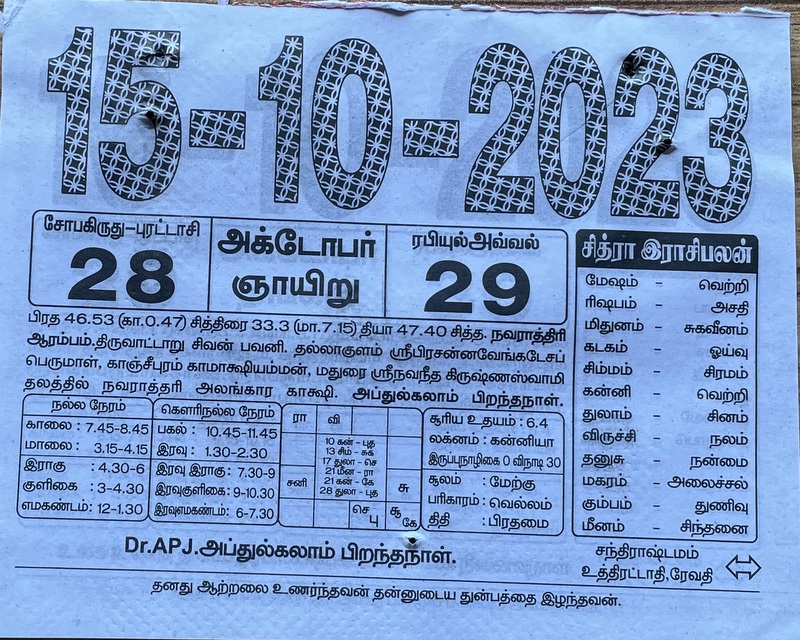 15-10-2023
சோபகிருது-புரட்டாசி
28
அக்டோபர்
ஞாயிறு
ரபியுல்அவ்வல்
29
பிரத 46.53 (கா.0.47) சித்திரை 33.3 (மா.7.15) தியா 47.40 சித்த. நவராத்திரி
ஆரம்பம்.திருவாட்டாறு சிவன் பவனி. தல்லாகுளம் ஸ்ரீபிரசன்னவேங்கடேசப்
பெருமாள், காஞ்சீபுரம் காமாக்ஷியம்மன், மதுரை ஸ்ரீநவநீத கிருஷ்ணஸ்வாமி
தலத்தில் நவராத்தரி அலங்கார காக்ஷி. அப்துல்கலாம் பிறந்தநாள்.
நல்ல நேரம்
காலை : 7.45-8.45
மாலை : 3.15-4.15
இராகு : 4.30-6
குளிகை : 3-4.30
எமகண்டம்: 12-1.30
கௌரிநல்ல நேரம்
பகல் : 10.45-11.45
இரவு : 1.30-2.30
இரவு இராகு: 7.30-9
இரவுகுளிகை: 9-10.30
இரவுஎமகண்டம்: 6-7.30
ரா வி
10 கன் - புத
13 சிம் - சுக்
17 துலா - செ
21 மீன - ரா
21 கன் - கே
28 துலா - புத
சனி சு
செ பு சூ கே
சூரிய உதயம் : 6.4
லக்னம் : கன்னியா
இருப்புநாழிகை 0 விநாடி 30
சூலம் : மேற்கு
பரிகாரம் : வெல்லம்
திதி : பிரதமை
சித்ரா இராசிபலன்
மேஷம் - வெற்றி
ரிஷபம் - அசதி
மிதுனம் - சுகவீனம்
கடகம் - ஓய்வு
சிம்மம் - சிரமம்
கன்னி - வெற்றி
துலாம் - சினம்
விருச்சி - நலம்
தனுசு - நன்மை
மகரம் - அலைச்சல்
கும்பம் - துணிவு
மீனம் - சிந்தனை
Dr.APJ.அப்துல்கலாம் பிறந்தநாள்.
சந்திராஷ்டமம்
உத்திரட்டாதி,ரேவதி
தனது ஆற்றலை உணர்ந்தவன் தன்னுடைய துன்பத்தை இழந்தவன்.